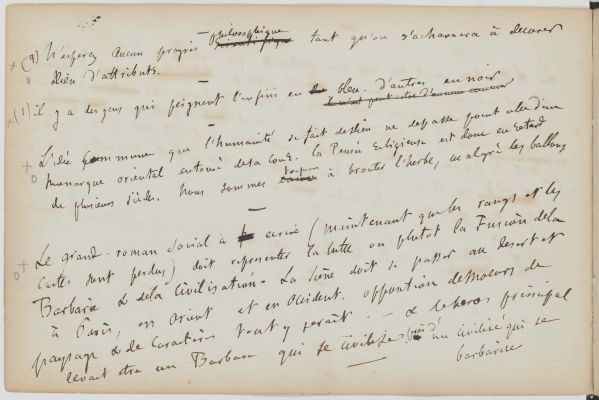 (2) N'esperez aucun progrès philosophique tant qu'on s'acharnera à décorer
Dieu d'attributs.
(1) il y a des gens qui peignent l'infini en bleu. d'autres en noir
L'idée commune que l'humanité se fait de dieu ne depasse point celle d'un
monarque oriental entouré de sa cour. la Pensée Religieuse est donc en retard
de plusieurs siècles. Nous sommes toujours à brouter l'herbe, malgré les ballons
Le grand roman social à ecrire (maintenant que les rangs et les
castes sont perdus) doit représenter la lutte ou plutot la Fusion de la
Barbarie & de la Civilisation. La scène doit se passer au desert et
à Paris, en Orient et en Occident. opposition de moeurs de
paysage & de caractères tout y serait. — & le heros principal
devrait etre un Barbare qui se civilise près d'un civilisé qui se
barbarise